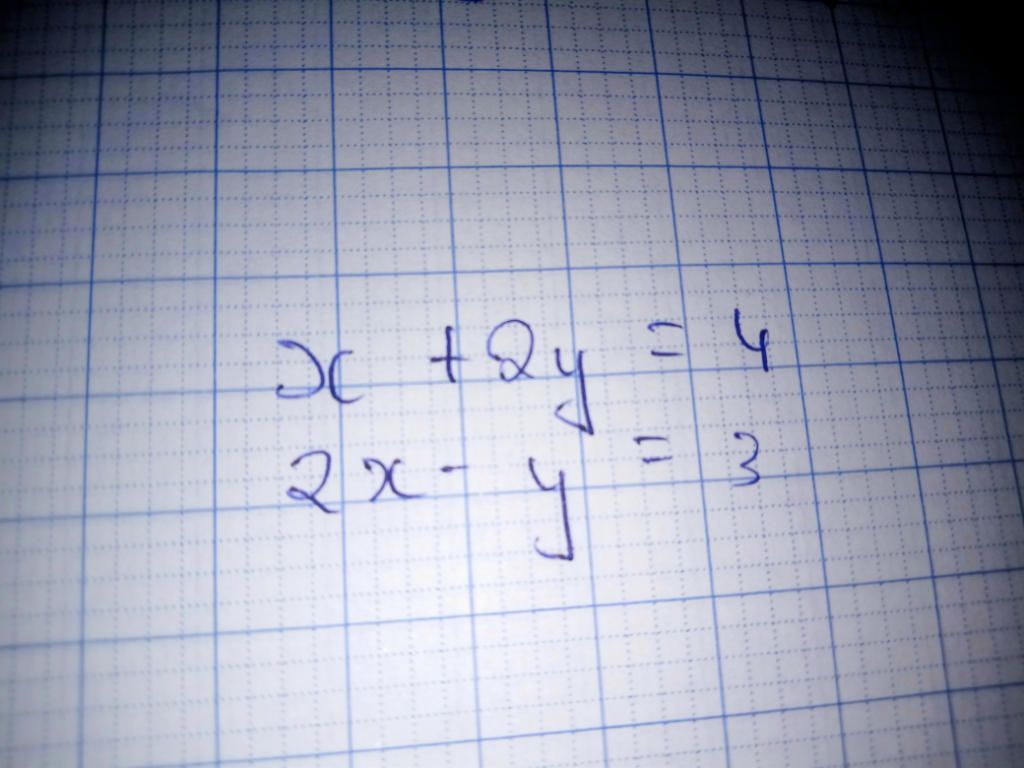 x + 2y = 4
2x - y = 3